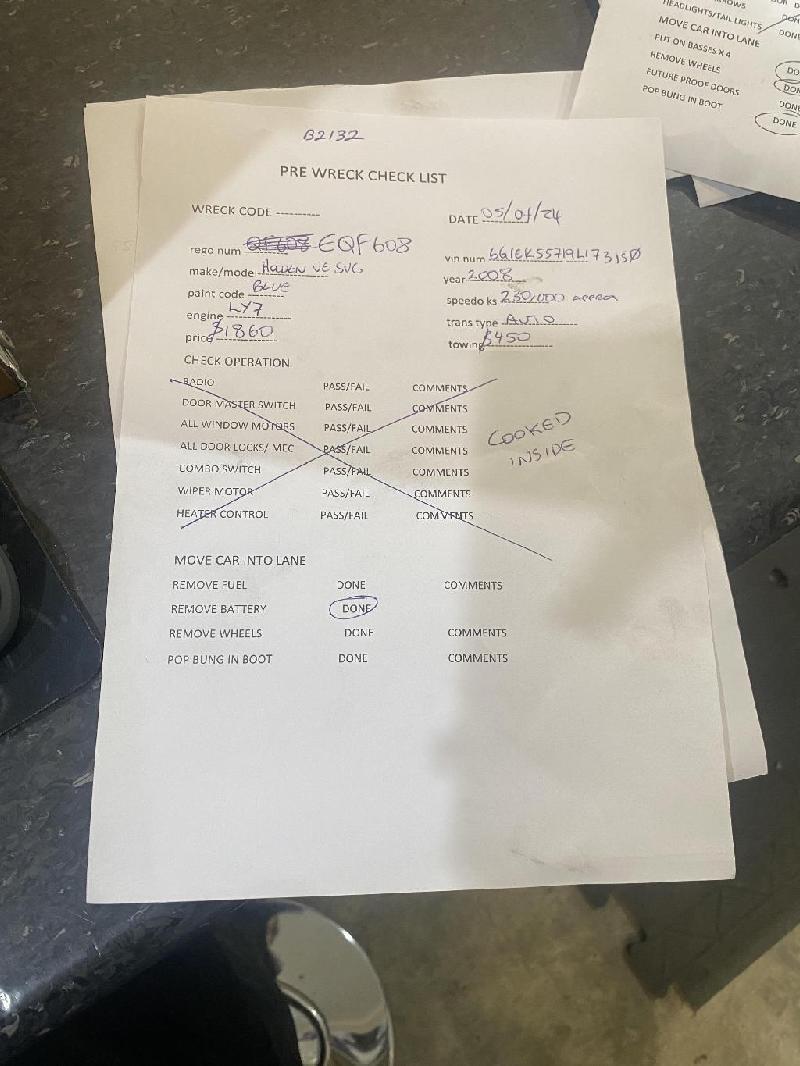 ROWS
HEADLIGHTS/TAIL LIGHTS DON
MOVE CAR INTO LANE DONE
PUT ON BASSES X 4
REMOVE WHEELS DO
FUTURE PROOF DOORS DON
POP BUNG IN BOOT DONE
DONE
B2132
PRE WRECK CHECK LIST
WRECK CODE ----------
DATE 05/01/24
rego num EQF608
vin num 6G1EK55719L173150
make/mode HOLDEN VE SVG
year 2008
paint code BLUE
speedo ks 230,000 approx
engine LY7
trans type AUTO
price $1860
towing $450
CHECK OPERATION
RADIO PASS/FAIL COMMENTS
DOOR MASTER SWITCH PASS/FAIL COMMENTS
ALL WINDOW MOTORS PASS/FAIL COMMENTS
ALL DOOR LOCKS/ MEC PASS/FAIL COMMENTS
COMBO SWITCH PASS/FAIL COMMENTS
WIPER MOTOR PASS/FAIL COMMENTS
HEATER CONTROL PASS/FAIL COMMENTS
COOKED
INSIDE
MOVE CAR INTO LANE
REMOVE FUEL DONE COMMENTS
REMOVE BATTERY DONE
REMOVE WHEELS DONE COMMENTS
POP BUNG IN BOOT DONE COMMENTS